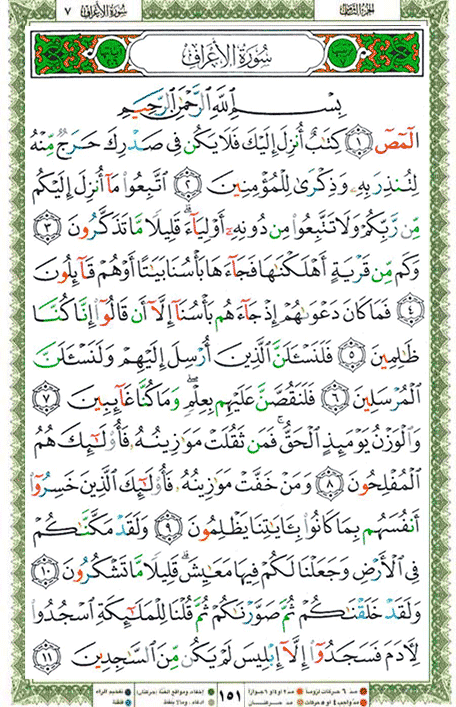 سُورَةُ الأَعْرَافِ ٧ الجزء الثامن
سُورَةُ الأَعْرَافِ
بِسْمِ اللَّهِ الرَّحْمَٰنِ الرَّحِيمِ
الٓمٓصٓ ١ كِتَٰبٌ أُنزِلَ إِلَيْكَ فَلَا يَكُن فِى صَدْرِكَ حَرَجٌ مِّنْهُ
لِتُنذِرَ بِهِۦ وَذِكْرَىٰ لِلْمُؤْمِنِينَ ٢ ٱتَّبِعُوا۟ مَآ أُنزِلَ إِلَيْكُم
مِّن رَّبِّكُمْ وَلَا تَتَّبِعُوا۟ مِن دُونِهِۦٓ أَوْلِيَآءَ ۗ قَلِيلًا مَّا تَذَكَّرُونَ ٣
وَكَم مِّن قَرْيَةٍ أَهْلَكْنَٰهَا فَجَآءَهَا بَأْسُنَا بَيَٰتًا أَوْ هُمْ قَآئِلُونَ
٤ فَمَا كَانَ دَعْوَىٰهُمْ إِذْ جَآءَهُم بَأْسُنَآ إِلَّآ أَن قَالُوٓا۟ إِنَّا كُنَّا
ظَٰلِمِينَ ٥ فَلَنَسْـَٔلَنَّ ٱلَّذِينَ أُرْسِلَ إِلَيْهِمْ وَلَنَسْـَٔلَنَّ
ٱلْمُرْسَلِينَ ٦ فَلَنَقُصَّنَّ عَلَيْهِم بِعِلْمٍ ۖ وَمَا كُنَّا غَآئِبِينَ ٧
وَٱلْوَزْنُ يَوْمَئِذٍ ٱلْحَقُّ ۚ فَمَن ثَقُلَتْ مَوَٰزِينُهُۥ فَأُو۟لَٰٓئِكَ هُمُ
ٱلْمُفْلِحُونَ ٨ وَمَنْ خَفَّتْ مَوَٰزِينُهُۥ فَأُو۟لَٰٓئِكَ ٱلَّذِينَ خَسِرُوٓا۟
أَنفُسَهُم بِمَا كَانُوا۟ بِـَٔايَٰتِنَا يَظْلِمُونَ ٩ وَلَقَدْ مَكَّنَّٰكُمْ
فِى ٱلْأَرْضِ وَجَعَلْنَا لَكُمْ فِيهَا مَعَٰيِشَ ۗ قَلِيلًا مَّا تَشْكُرُونَ ١٠
وَلَقَدْ خَلَقْنَٰكُمْ ثُمَّ صَوَّرْنَٰكُمْ ثُمَّ قُلْنَا لِلْمَلَٰٓئِكَةِ ٱسْجُدُوا۟
لِـَٔادَمَ فَسَجَدُوٓا۟ إِلَّآ إِبْلِيسَ لَمْ يَكُن مِّنَ ٱلسَّٰجِدِينَ ١١
١٥١